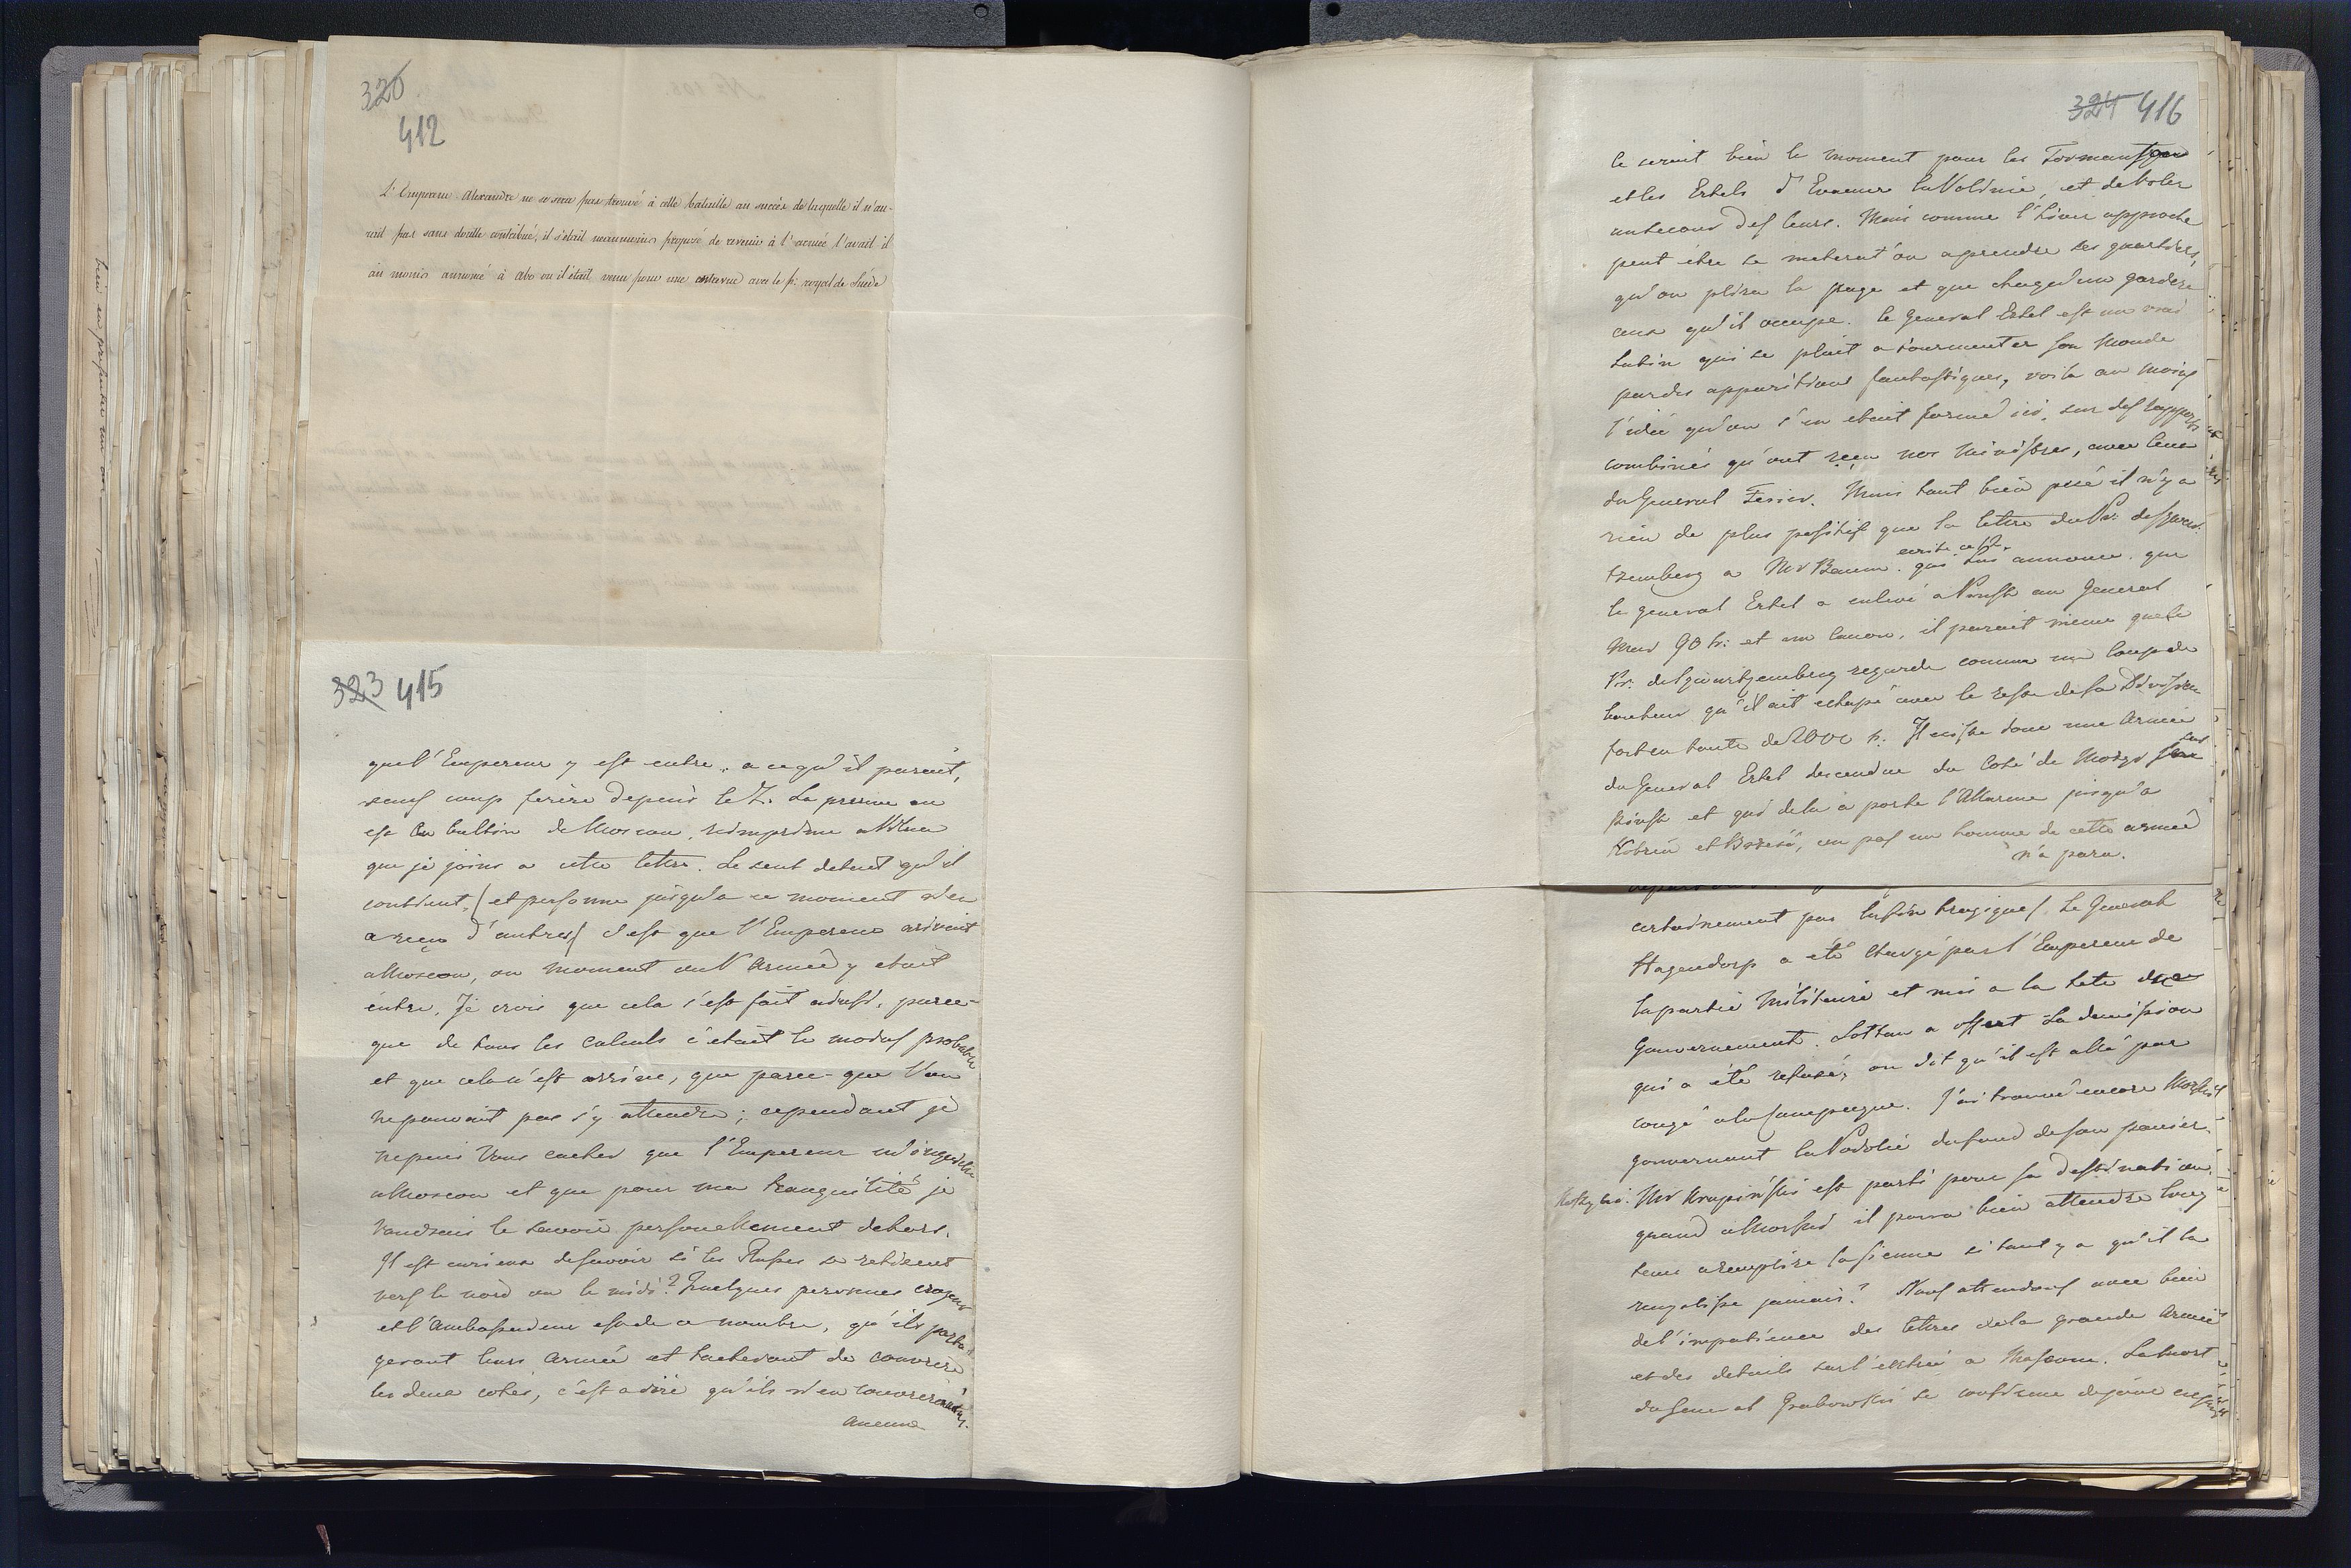 320
412
L'Empereur Alexandre ne se sera pas trouvé à cette bataille au succès de laquelle il n'au-
rait pas sans doutte contribué, il s'était neanmoins proposé de revenir à l'armée l'avait il
au moins annoncé à Abo ou il était venu pour une entrevue avec le pr. royal de Suède
323 415
que l'Empereur y est entre, a ce qu'il parait,
sans coup ferire depuis le 7. La preuve en
est un bultin de Moscou, reimprime a Vilna
que je joins a cette lettre. Le seul detail qu'il
contient, (et personne jusqu'a ce moment n'en
a reçu d'autres) c'est que l'Empereur arrivait
a Moscou, au moment ou l'Armée y etait
entre. Je crois que cela s'est fait ainsi, parce-
que de tous les calculs c'etait le moins probable
et que cela n'est arrive, que parce-que l'on
ne pouvait pas s'y attendre; cependant je
ne puis Vous cacher que l'Empereur m'inquiete
a Moscou et que pour ma tranquilité je
voudrais le savoir personellement dehors.
Il est curieux de savoir si les Russes se retirent
vers le nord ou le midi? Quelques personnes croyent
et l'Ambassadeur est de ce nombre, qu'ils parta-
geront leurs Armée et tacheront de couvrire
les deux cotés, c'est a dire qu'ils n'en couvreront
aucune
324 416
Ce serait bien le moment pour les Tormansow
et les Ertels d'Evacuer la Volinie, et de voler
au secour des leurs. Mais comme l'hiver approche
peut être se metterat'on a prendre ses quartiers,
qu'on plira la page et que chaqu'un gardera
ceux qu'il occupe. Le General Ertel est un vrai
Lutin qui se plait a tourmenter son Monde
par des apparitions fantastiques, voila au moins
l'idée qu'on s'en etait formé ici, sur des rapports
combinés qu'ont reçu nos Ministres, avec ceux
du General Ferier. Mais tout bien pesé il n'y a
rien de plus positif que la lettre du Pr: de Schwar-
tzemberg a Mr Baum. qui lui annonce que
le general Ertel a enlevé a Pinsk au General
Mohr 90 h: et un canon, il parait même que le
Pr: de Schwartzemberg regarde comme un coup de
bonheur qu'il ait echapé avec le reste de sa Division
fort en tout de 2000 h: Il existe donc une Armée
du General Ertel descendue du coté de Mozyr sur
Pinsk et qui dela a porte l'Allarme jusqu'a
Kobrin et Brzesć, ou pas un homme de cette armée
n'a paru.
certainement pas la fin tragique. Le General
Hagendorp a été chargé par l'Empereur de
la partie Militaire et mis a la tete du
Gouvernement. Soltan a offert sa demission
qui a été refusée, on dit qu'il est allé par
congé a la Campagne. J'ai trouvé encore Morski
gouvernant la Podolie du fond de son panier.
Mr Krupiński est parti pour sa destination,
quand a Morski il poura bien attendre long
tems a remplire la sienne si tant y a qu'il la
remplisse jamais? Nous attendons avec bien
de l'impatience des lettres de la grande Armée
et des details sur l'entrée a Moscou. La mort
du General Grabowski se confirme